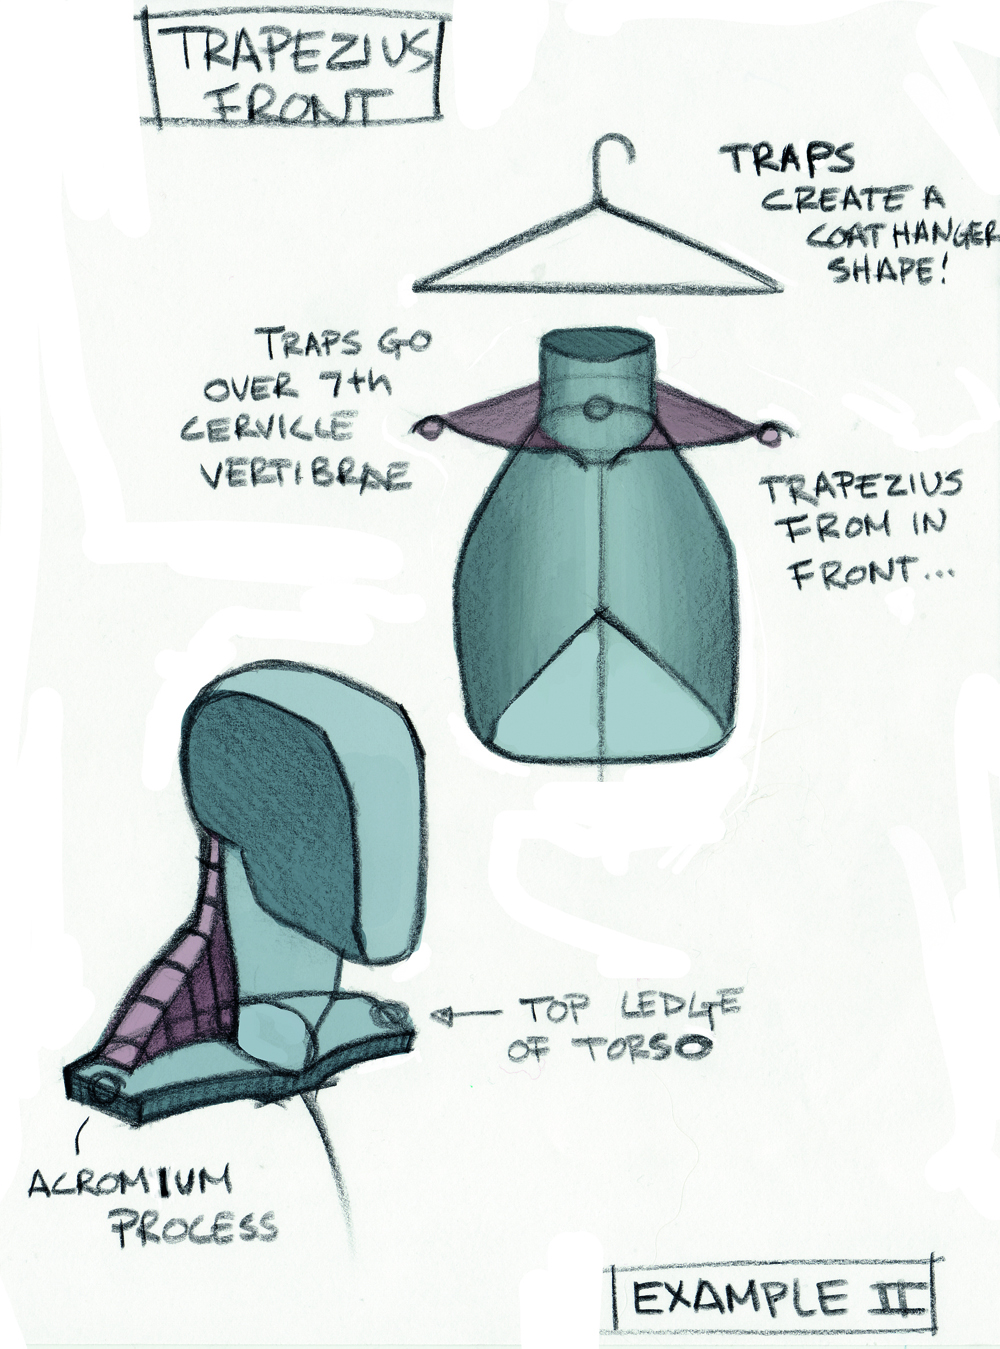 TRAPEZIUS
FRONT
TRAPS
CREATE A
COAT HANGER
SHAPE!
TRAPS GO
OVER 7th
CERVICLE
VERTIBRAE
TRAPEZIUS
FROM IN
FRONT...
TOP LEDGE
OF TORSO
ACROMIUM
PROCESS
EXAMPLE II